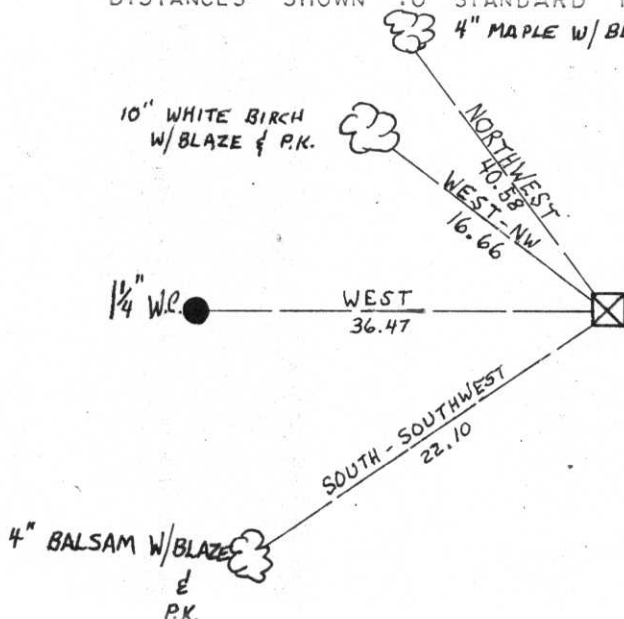 DISTANCES SHOWN TO STANDARD
4" MAPLE W/
10" WHITE BIRCH
W/BLAZE & P.K.
NORTHWEST
40.58
WEST-NW
16.66
1 1/4" W.C.
WEST
36.47
SOUTH-SOUTHWEST
22.10
4" BALSAM W/BLAZE
&
P.K.